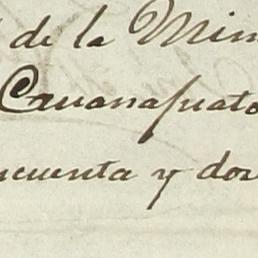 de la Min
Guanajuato
ncuenta y dos